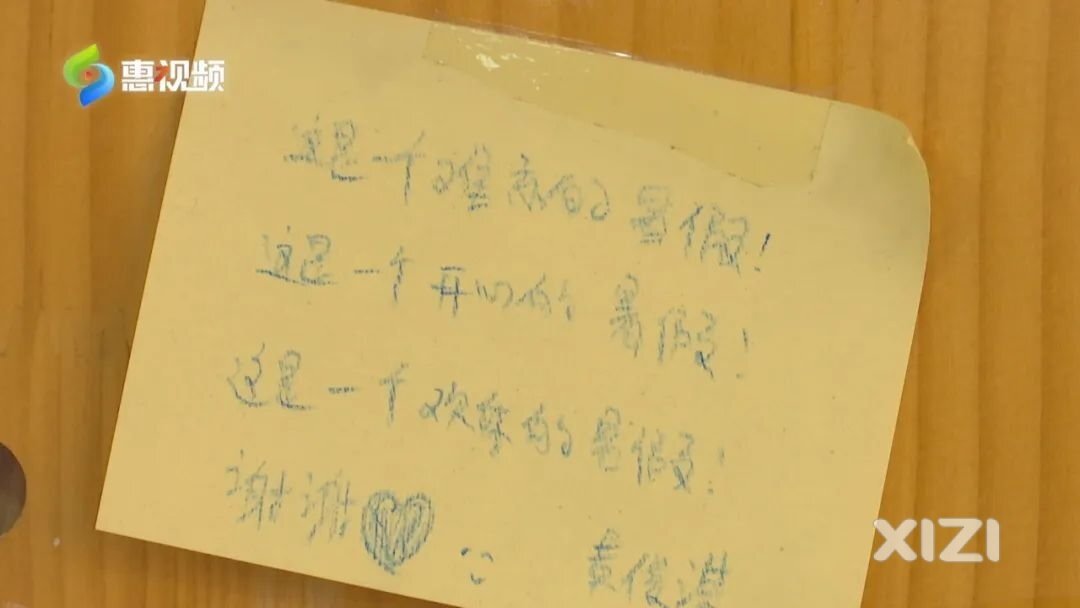 惠视频
这是一个难忘的暑假!
这是一个开心的暑假!
这是一个欢乐的暑假!
谢谢
XIZI